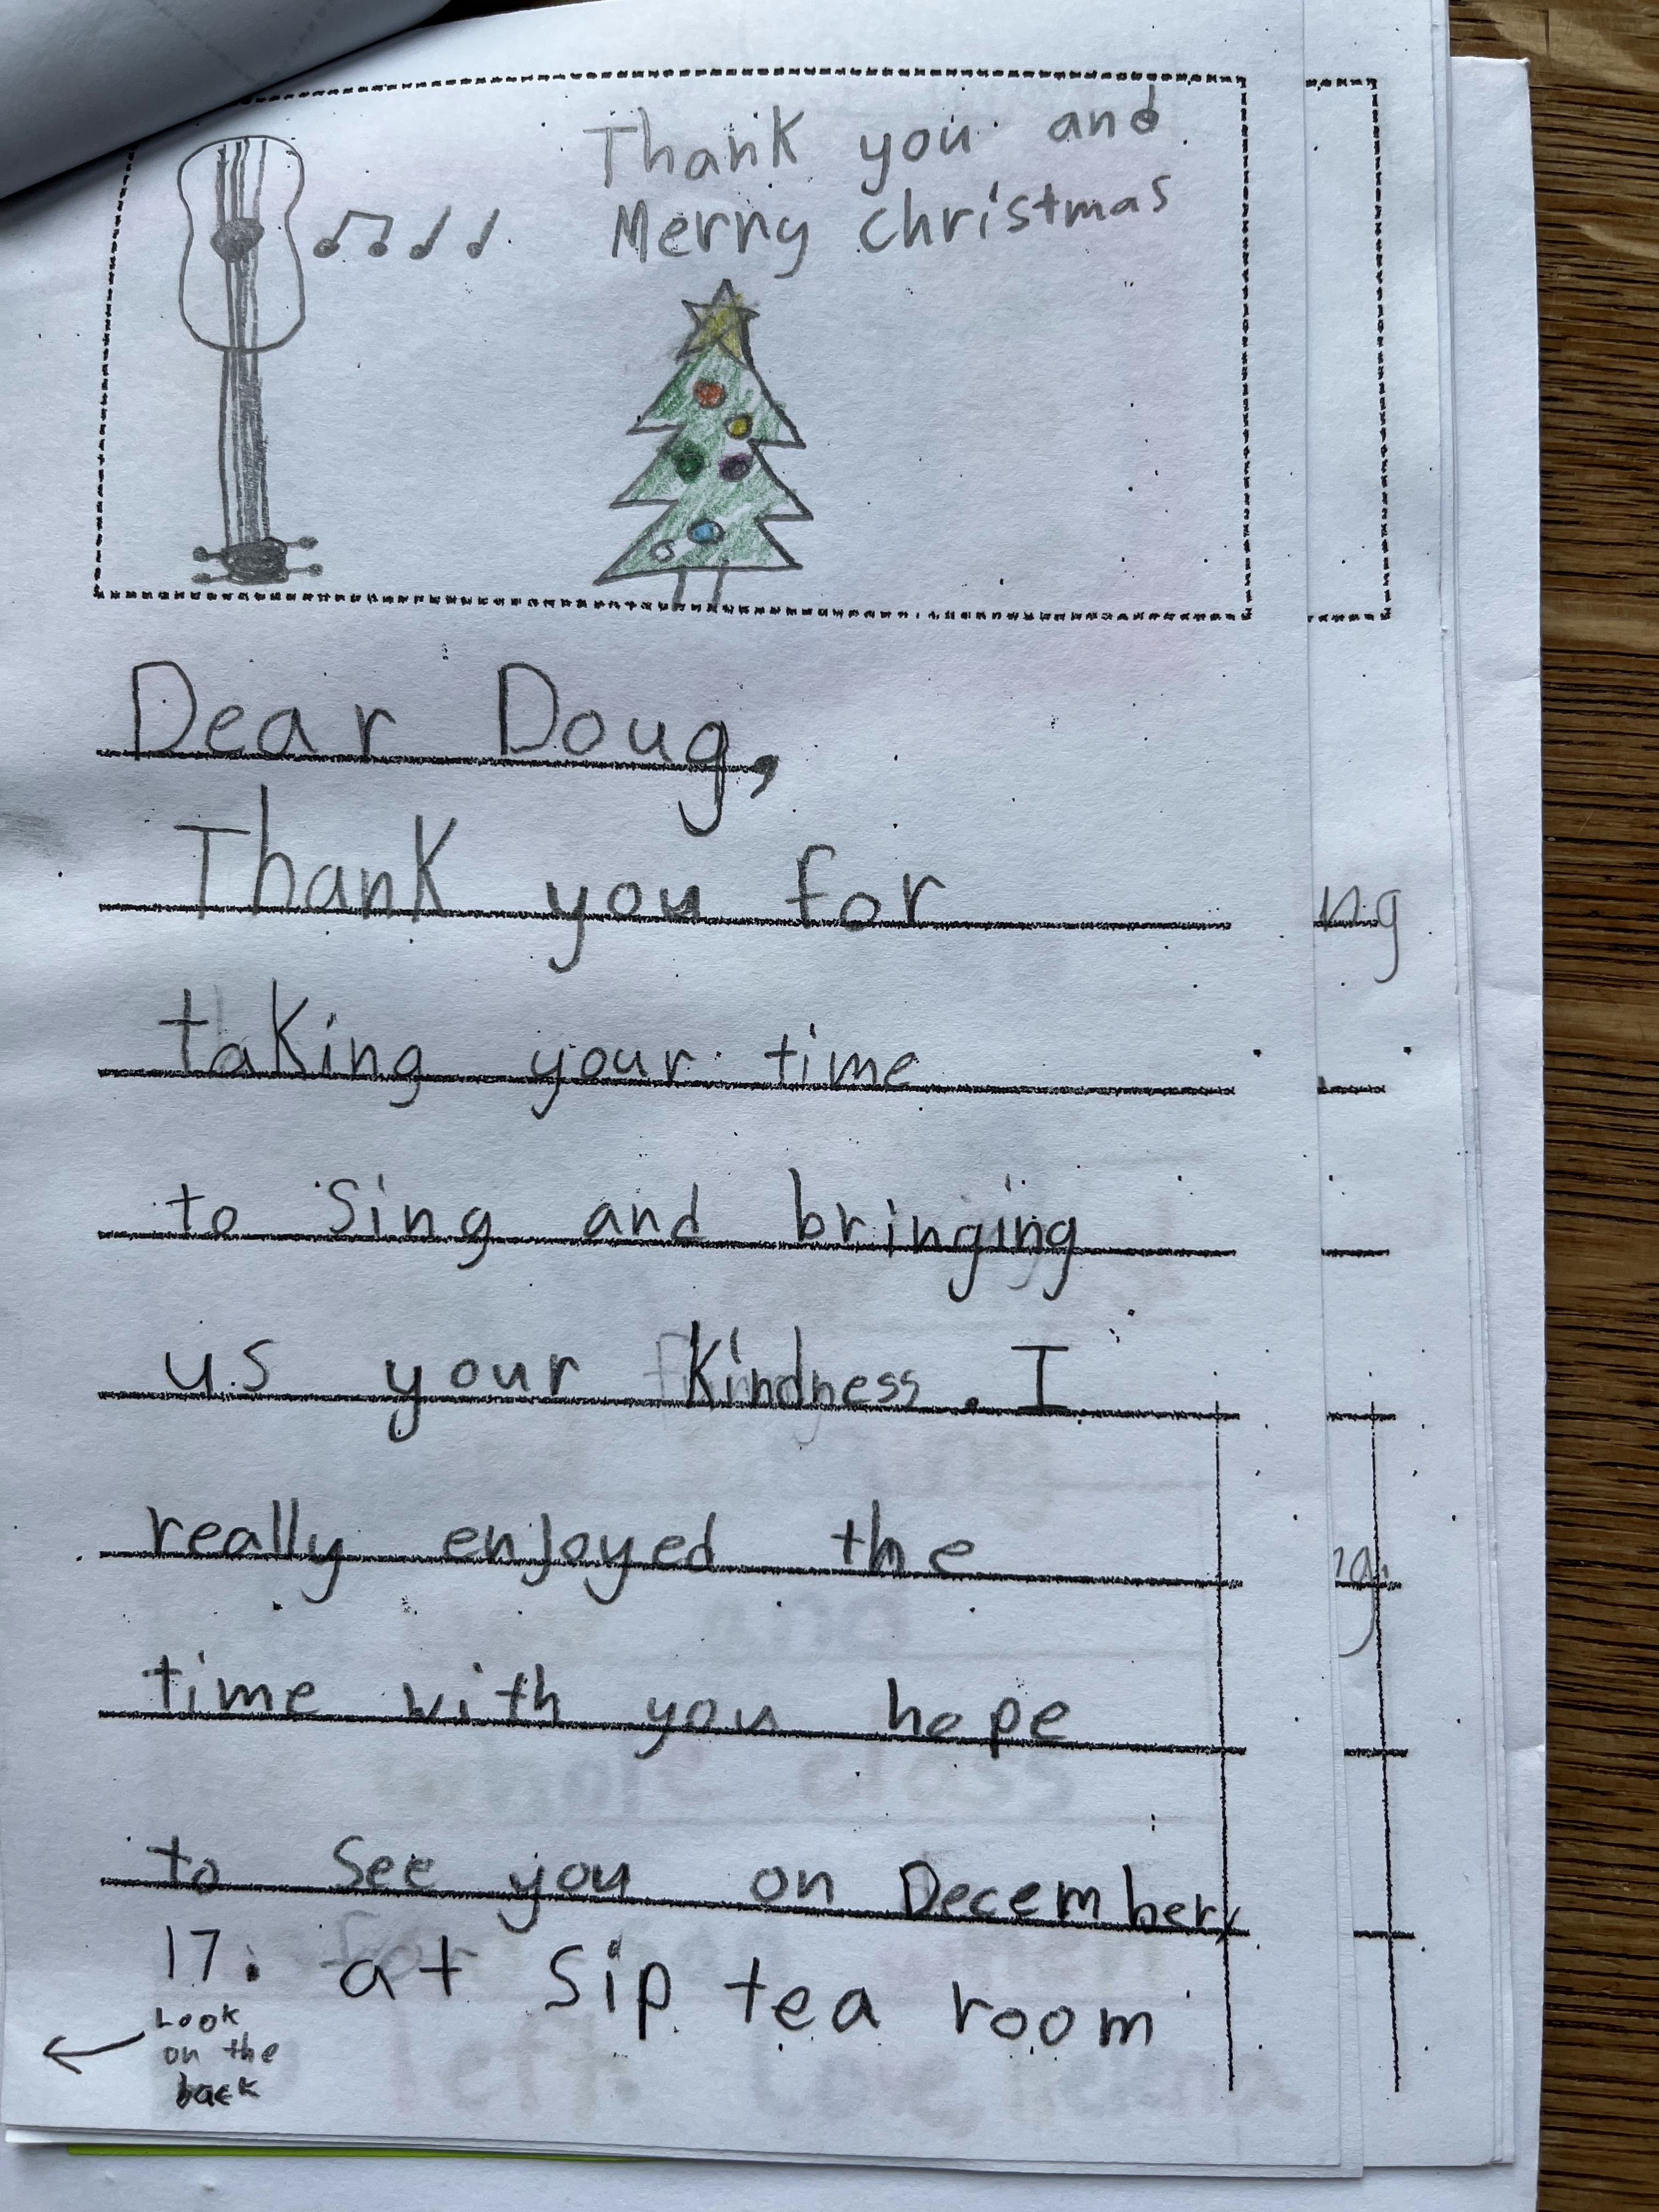 Thank you and
Merry christmas
Dear Doug,
Thank you for
taking your time
to Sing and bringing
us your Kindness. I
really enjoyed the
time with you hope
to See you on December
17. at Sip tea room
Look
on the
back
ng